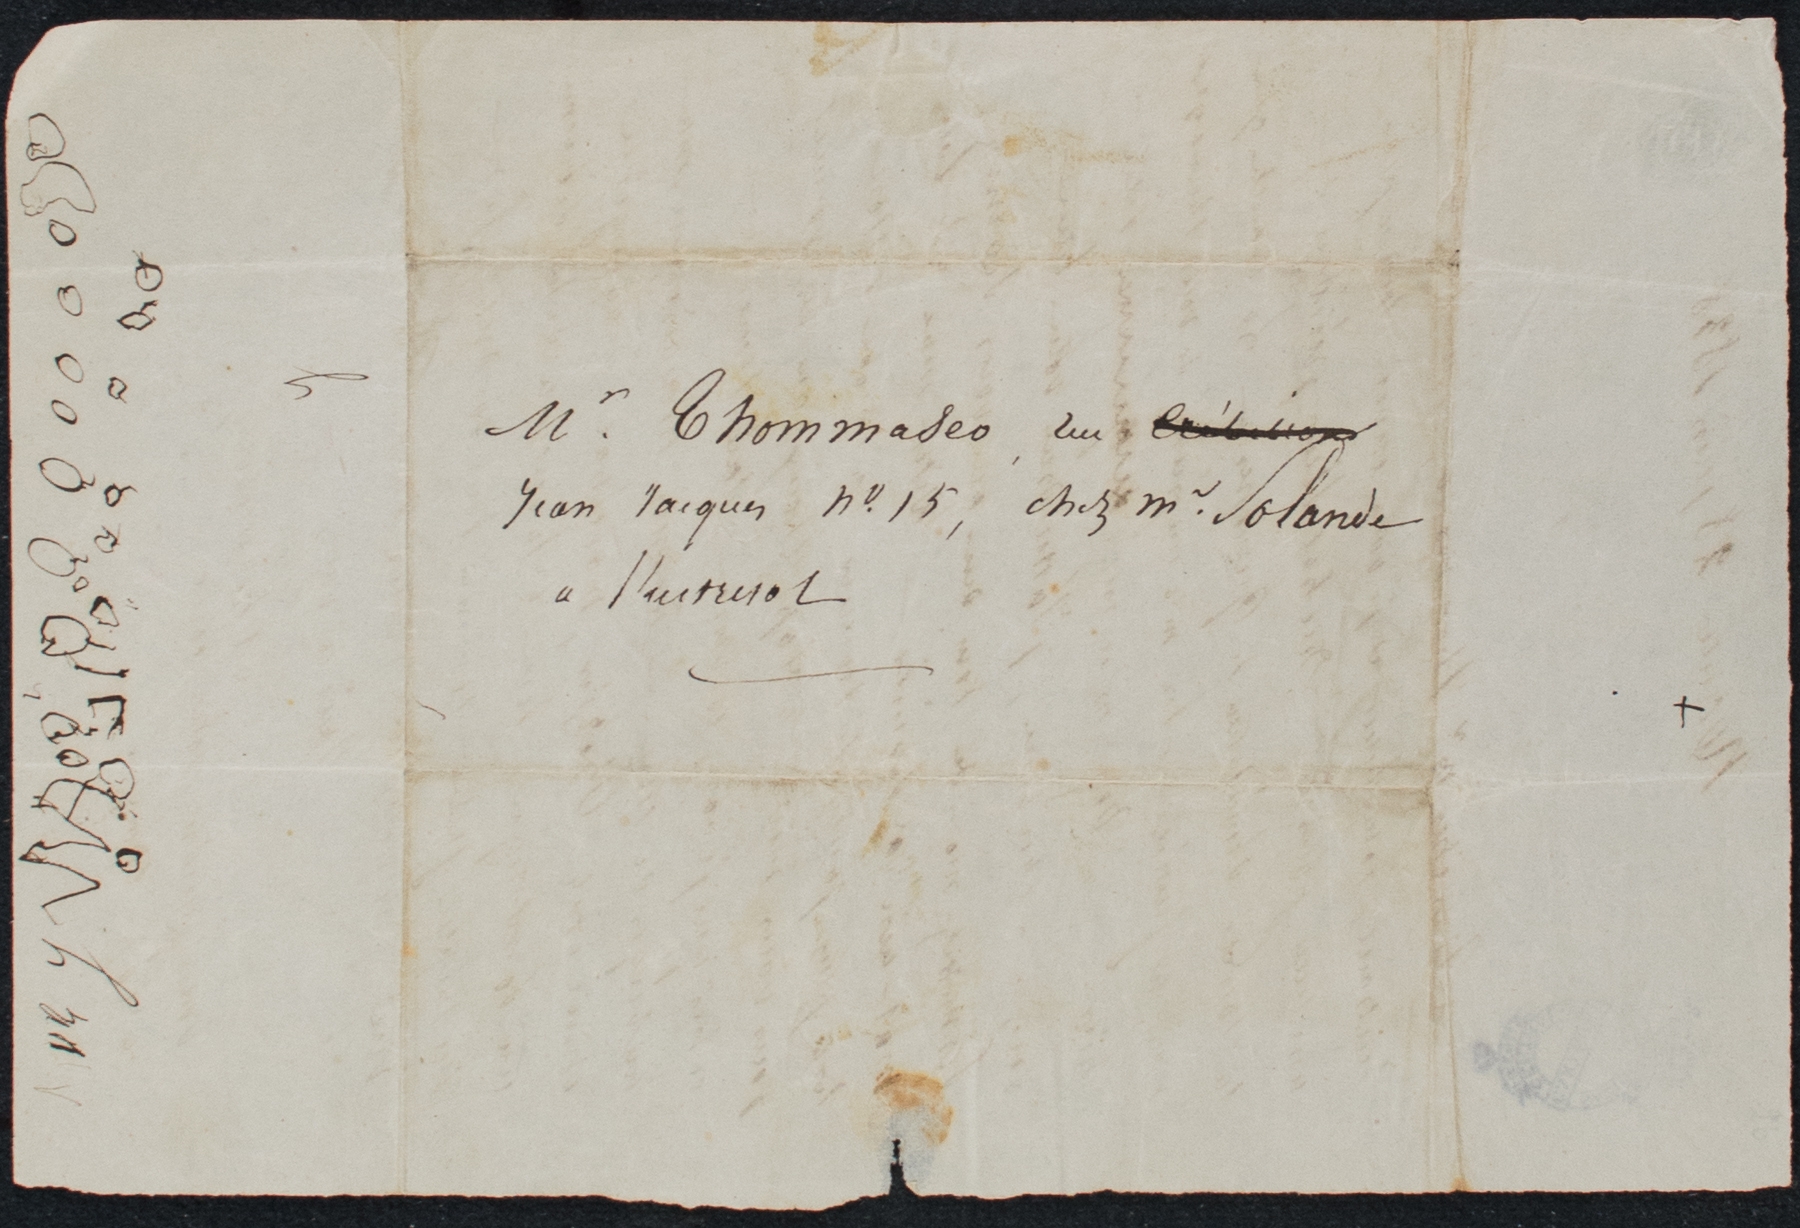 Mr. Thommaseo, rue ~~Crébillon~~
Jean Jacques No. 15, chez mr. Solande
a l'entresol